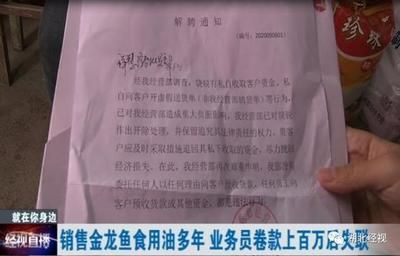 解聘通知
(编号:2020090601)
经我经营部调查,饶姣有私自收取客户资金,私
自向客户开虚假送货单(非我经营部销货单)等行为,
已对我经营部造成重大负面影响,我经营部已对饶姣
作出开除处理,并保留追究其法律责任的权力。贵客
户应及时采取措施追回其私下收取的资金,尽力挽回
经济损失。在此,我经营部再次郑重申明,我部没有
委托任何人以任何理由向客户预收货款,任何员工向
客户预收货款或其他资金,都是
珍珠
就在你身边
经视直播
销售金龙鱼食用油多年 业务员卷款上百万后失联
湖北经视